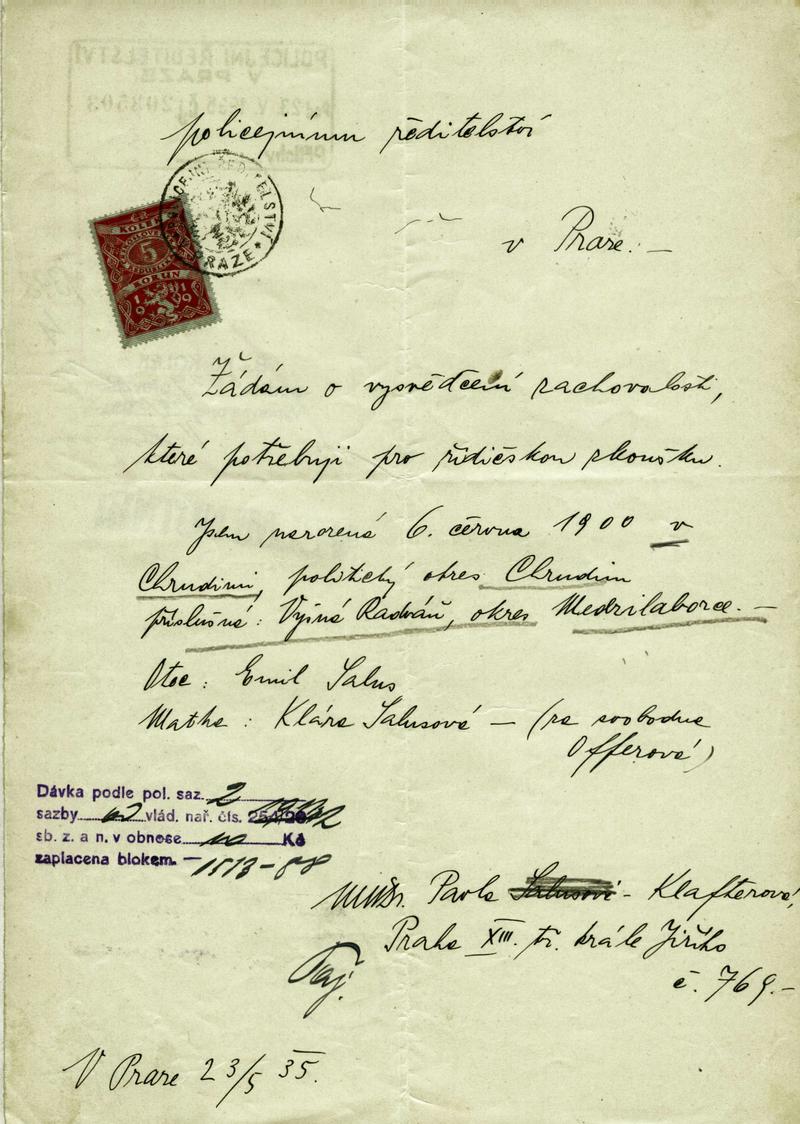 policejnímu ředitelství
v Praze. —
POLICEJNÍ ŘEDITELSTVÍ
V PRAZE
KOLEK
5
KORUN
1919
Žádám o vysvědčení zachovalosti,
které potřebuji pro řidičskou zkoušku.
Jsem narozená 6. června 1900 v
Chrudimi, politický okres Chrudim
příslušná: Vyšná Radváň, okres Medzilaborce. —
Otec: Emil Salus
Matka: Klára Salusová — (za svobodna
Offerová)
Dávka podle pol. saz. 2
sazby vlád. nař. čís.
sb. z. a n. v obnose 10 Kč
zaplacena blokem. — 1513-88
MUDr. Pavla Salusová - Klafterová,
Praha XIII. tř. krále Jiřího
č. 769.—
V Praze 23/5 35.